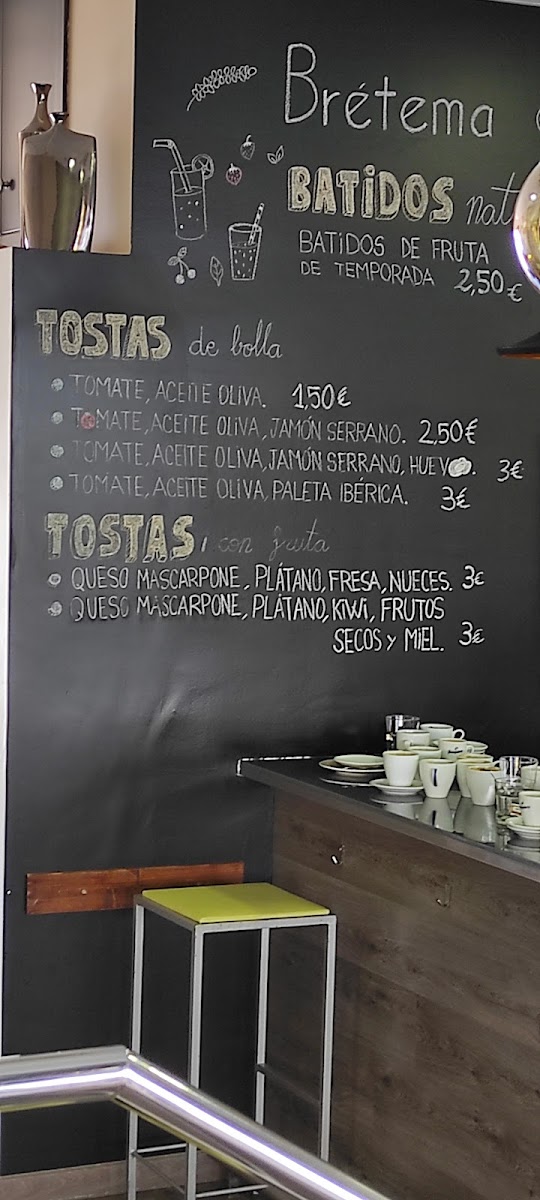 Brétema
BATiDOS nat
BATiDOS DE FRUTA
DE TEMPORADA 2,50€
TOSTAS de bolla
TOMATE, ACEITE OLIVA. 1,50€
TOMATE, ACEITE OLIVA, JAMÓN SERRANO. 2,50€
TOMATE, ACEITE OLIVA, JAMÓN SERRANO, HUEVO. 3€
TOMATE, ACEITE OLIVA, PALETA IBÉRICA. 3€
TOSTAS con fruta
QUESO MASCARPONE, PLÁTANO, FRESA, NUECES. 3€
QUESO MASCARPONE, PLÁTANO, KIWI, FRUTOS
SECOS y MIEL. 3€